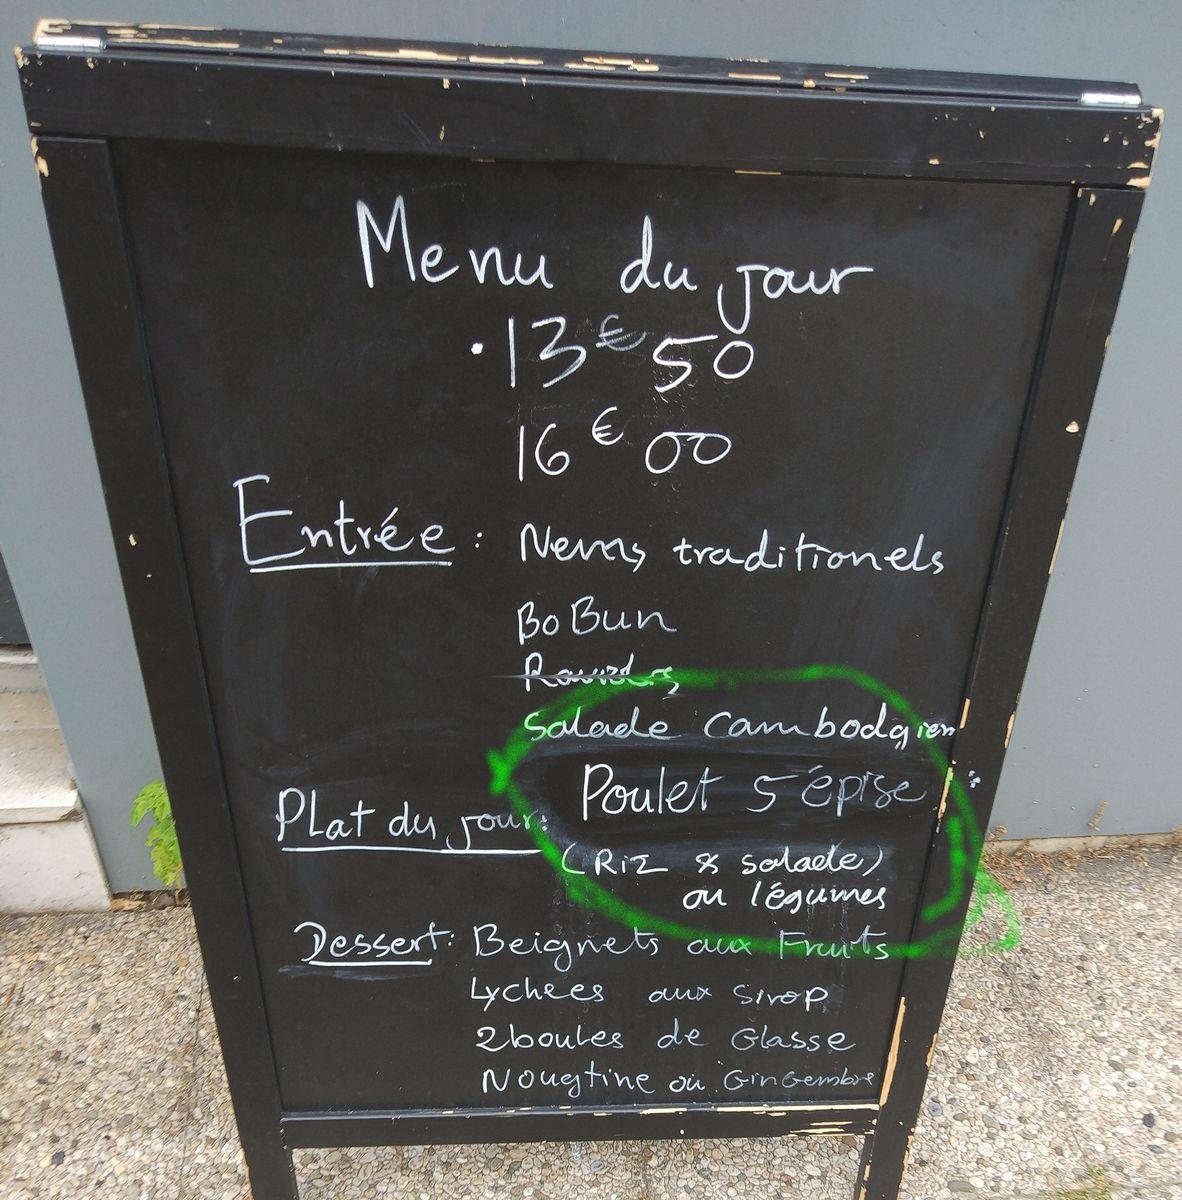 Menu du jour
.13€50
16€00
Entrée : Nems traditionels
BoBun
Raviolis
Salade Cambodgien
Plat du jour: Poulet 5 épise
(Riz & salade)
ou légumes
Dessert: Beignets aux Fruits
Lychees aux sirop
2boules de Glasse
Nougtine ou Gingembre